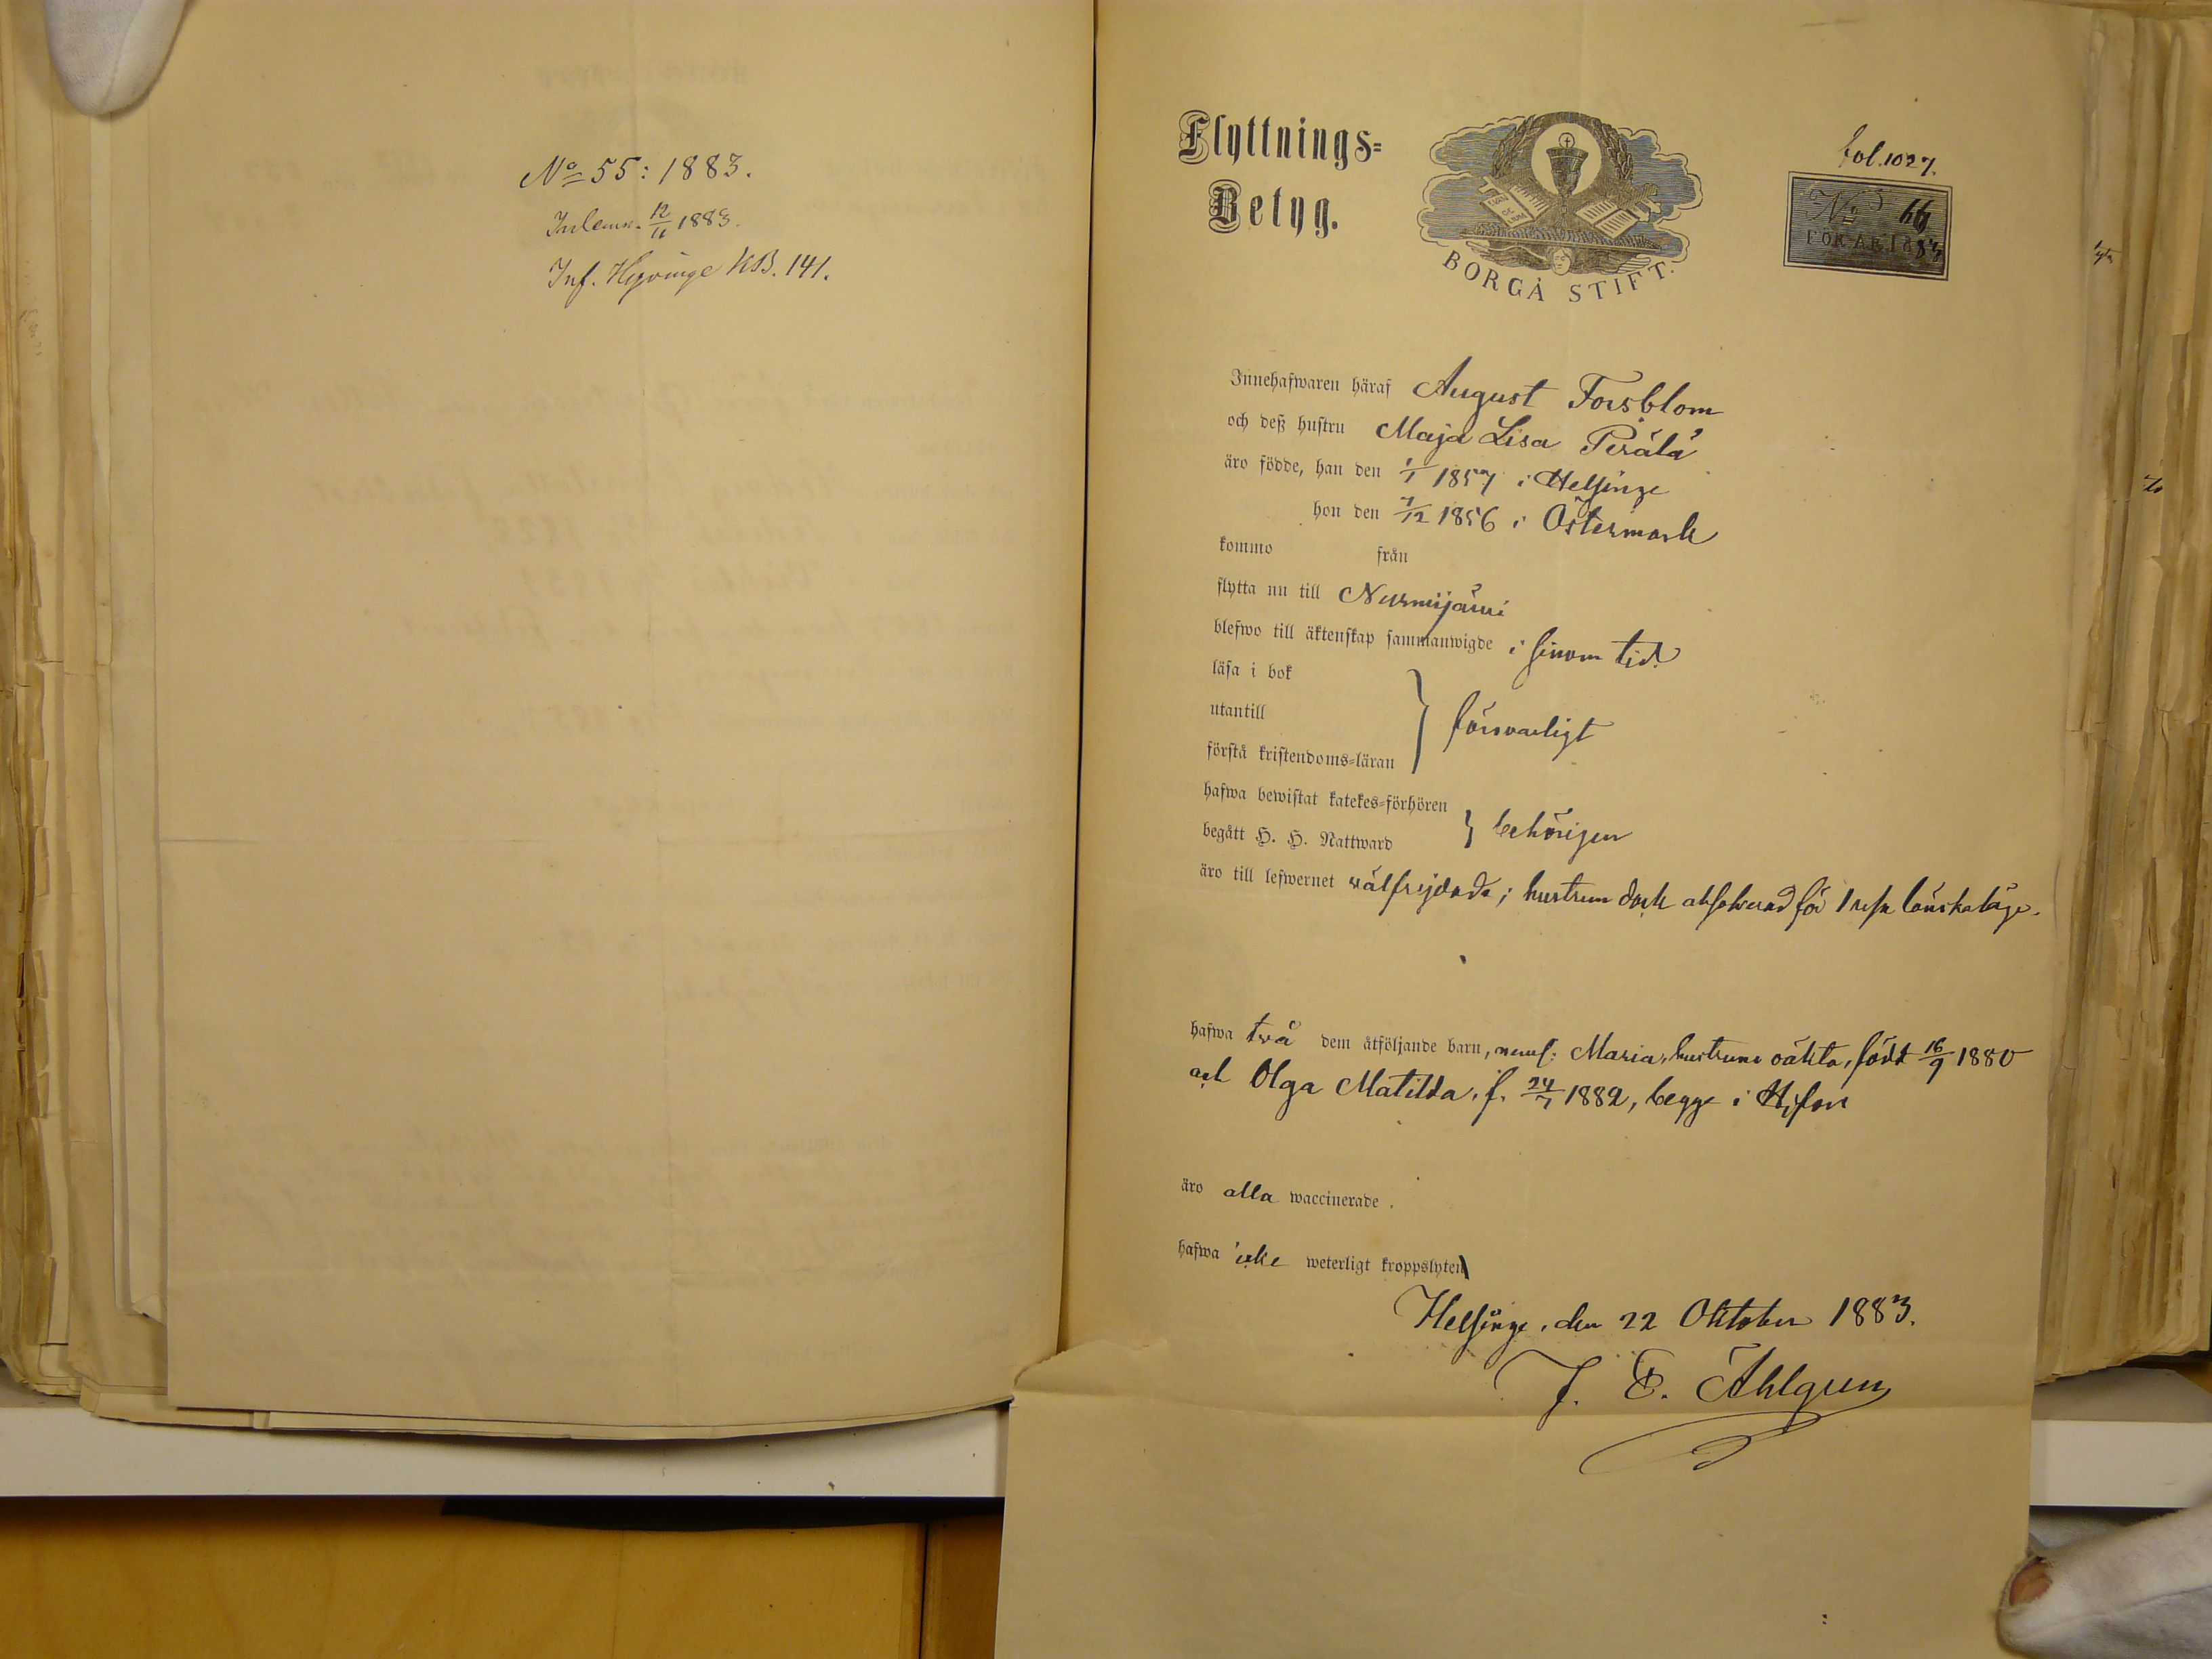 No 55: 1883.
Inlemn. 12/11 1883.
Inf. Hyvinge KB. 141.
Flyttnings=
Betyg.
BORGÅ STIFT.
fol. 1027.
No 66
FÖR ÅR 1883
Innehafwaren häraf August Forsblom
och deß hustru Maja Lisa Perälä
äro födde, han den 1/1 1857 i Helsinge
hon den 7/12 1856 i Östermark
kommo från
flytta nu till Nurmijärvi
blefwo till äktenskap sammanwigde i sinom tid.
läsa i bok
utantill
förstå kristendoms=läran } försvarligt
hafwa bewistat katekes=förhören
begått H. H. Nattward } behörigen
äro till lefwernet välfrejdade; hustrun dock absolverad för 1 resa lönskaläge.
hafwa två dem åtföljande barn, neml: Maria, hustruns oäkta, född 16/9 1880
och Olga Matilda, f. 24/7 1882, begge i H:fors
äro alla waccinerade.
hafwa icke weterligt kroppslyten
Helsinge, den 22 Oktober 1883.
J. E. Åhlgren